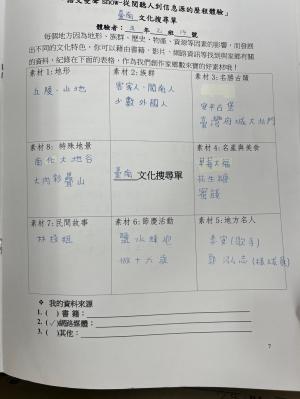 語文變聲 show-從閱聽人到信息源的歷程體驗」
臺南 文化搜尋單
體驗者： 年 班 號
每個地方因為地形、族群、歷史、物產、資源等因素的影響，而發展
出不同的文化特色，你可以藉由書籍、影片、網路資訊等找到與家鄉有關
的資料，紀錄在下面的表格，作為我們創作家鄉數來寶的好素材哦！
素材 1：地形
丘陵、山地
素材 2：族群
客家人、閩南人
少數外國人
素材 3：名勝古蹟
安平古堡
臺灣府城大北門
素材 8： 特殊地景
南化大地谷
大內彩疊山
臺南 文化搜尋單
素材 4：名產與美食
草莓大福
花生糖
蜜餞
素材 7：民間故事
林投姐
素材 6：節慶活動
鹽水蜂炮
做十六歲
素材 5：地方名人
(歌手)
郭泓志
❖ 我的資料來源
1. ( ) 書 籍：
2. (✓)網路媒體：
3. ( )其他：
7